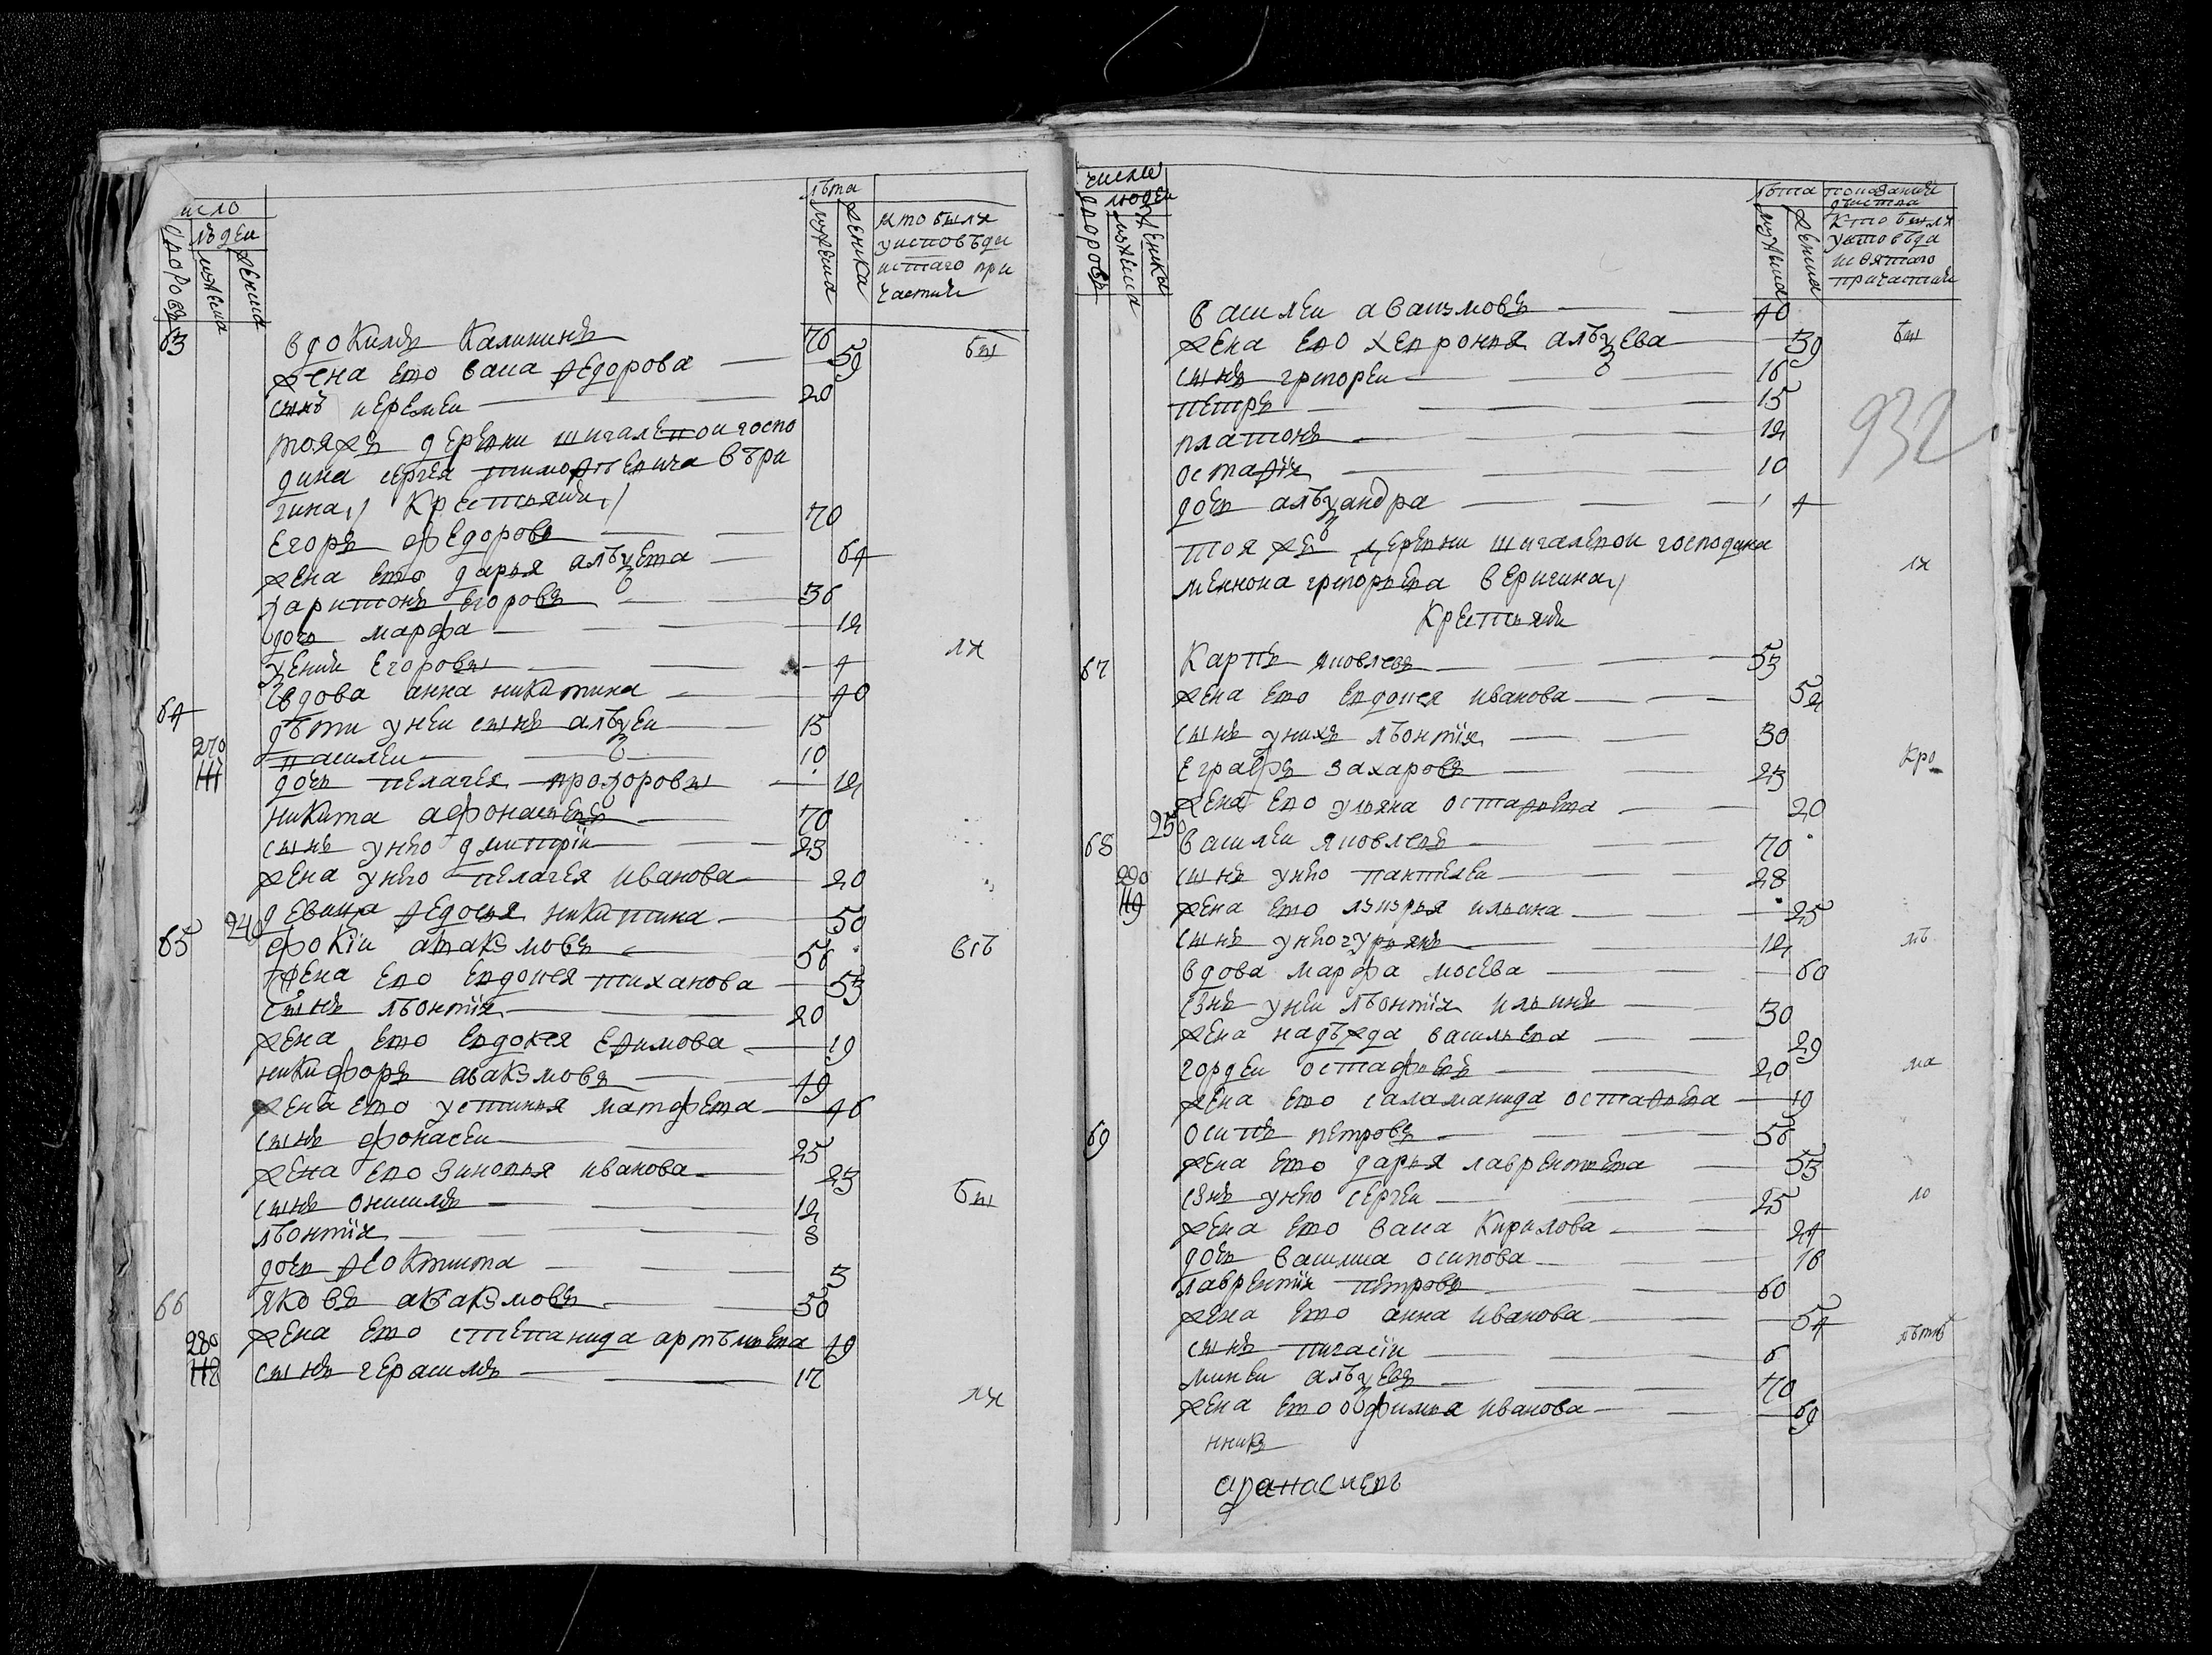 число
людеи
дворовъ
мужеска
женска
лѣта
мужеска
женска
кто былъ
уисповѣди
истаго при
частия
63 вдокимъ Калининъ 76
жена ево васа федорова 59
сынъ иеремеи 20
тояжъ деревни шигалевои госпо
дина сергея тимофѣевича вѣри
гина, крестьяня
Егоръ федоровъ 70
жена ево дарья алѣѯева 64
харитонъ егоровъ 36
дочь марфа 12
ѯения Егоровы 4
64 вдова анна никитина 40
дѣти унеи сынъ алѣѯеи 15
270 василеи 10
дочь пелагея прохоровы 12
никита афонасьевъ 70
сынъ унѣго дмитрїи 23
жена унѣго пелагея иванова 20
240 девица федосья никитина 50
65 фокїи авакумовъ 56
жена ево евдокея тиханова 53
сынъ лѣонтїи 20
жена ево евдокея ефимова 19
никифоръ авакумовъ 49
жена ево устинья матфева 46
сынъ фонасеи 25
жена ево зиновья иванова 23
сынъ онисимъ 12
лѣонтїи 8
дочь феоктиста 3
66 яковъ авакумовъ 50
280 жена ево степанида артѣмьева 49
сынъ герасимъ 17
бы
ли
всѣ
бы
ли
число
людеи
дворовъ
мужеска
женска
лѣта показания
действа
мужеска
женска
кто былъ
уисповѣди
исвятаго
причастия
василеи авакумовъ 40
жена ево хевронья алѣѯева 39
сынъ григореи 16
петръ 15
платонъ 12
остафїи 10
дочь алѣѯандра 4
тояжъ деревни шигалевои господина
мемнона григорьева веригина,
Крестьяня
67 Карпъ яковлевъ 53
жена ево евдокея иванова 52
сынъ унихъ лѣонтїи 30
Евграфъ захаровъ 23
жена ево ульяна остафьева 20
250
68 василеи яковлевъ 70
290 сынъ унѣго пантелеи 28
жена ево лукерья ильина 25
сынъ унѣго гурьянъ 12
вдова марфа мосева 60
сынъ унеи лѣонтїи ильинъ 30
жена надѣжда васильева 29
гордеи остафьевъ 20
жена ево саламанида остафьева 19
69 осипъ петровъ 56
жена ево дарья лаврентьева 53
сынъ унѣго сергеи 25
жена ево васа Кирилова 24
дочь василиса осипова 16
лаврентїи петровъ 60
жена ево анна иванова 54
сынъ пигасїи 6
минеи алѣѯевъ 70
жена ево офимья иванова 69
никъ
афанасиевъ
бы
ли
кро
мѣ
ма
ло
лѣтнъ
932